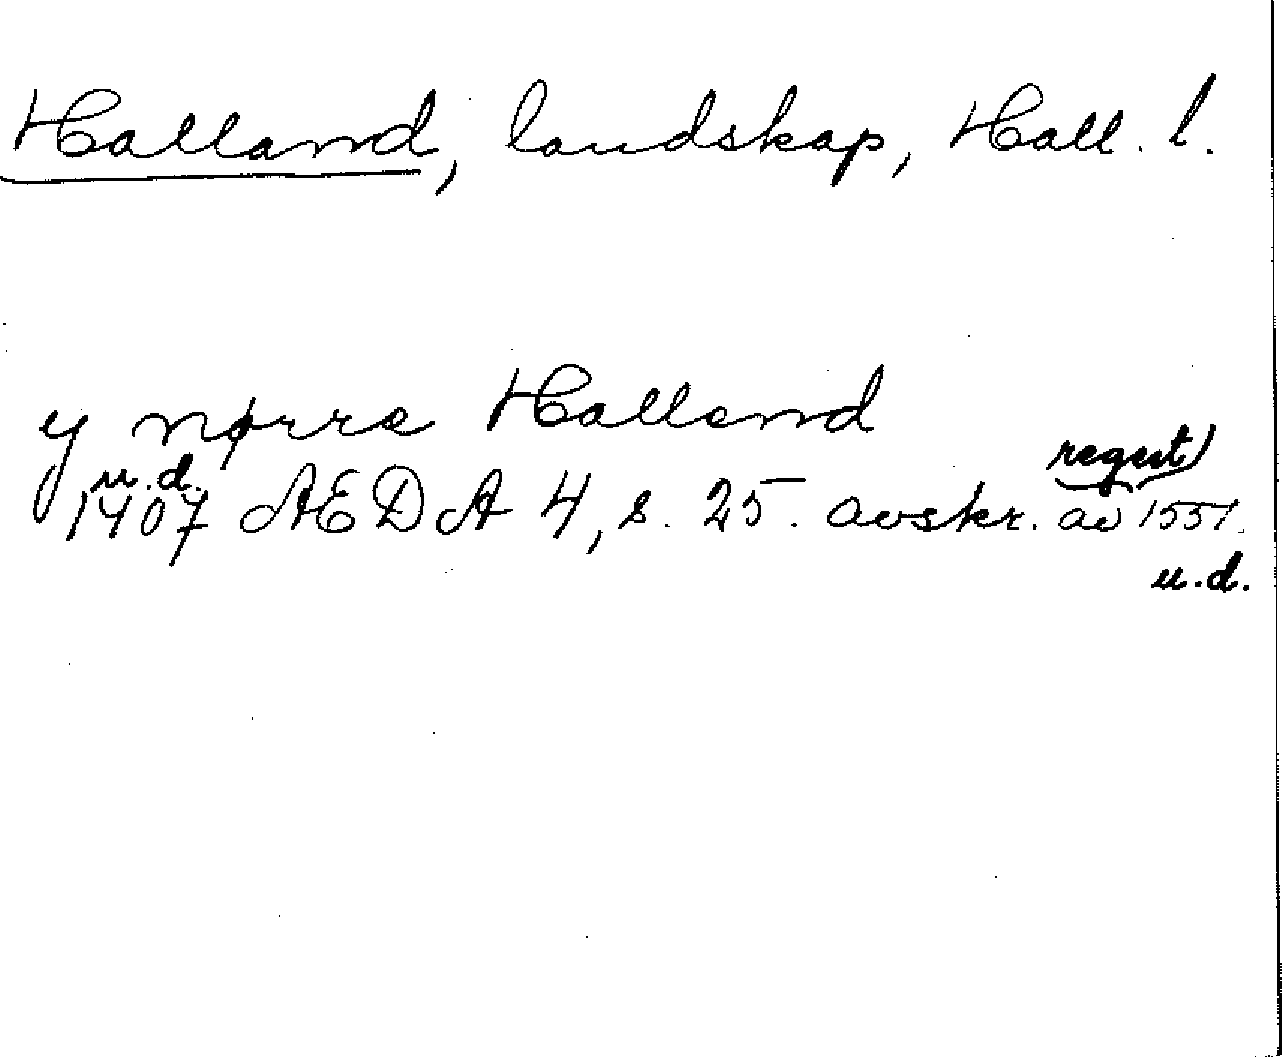 Halland, landskap, Hall. l.
y nørre Halland
u.d. regest
1407 AEDA 4, s. 25. avskr. av 1551.
u.d.